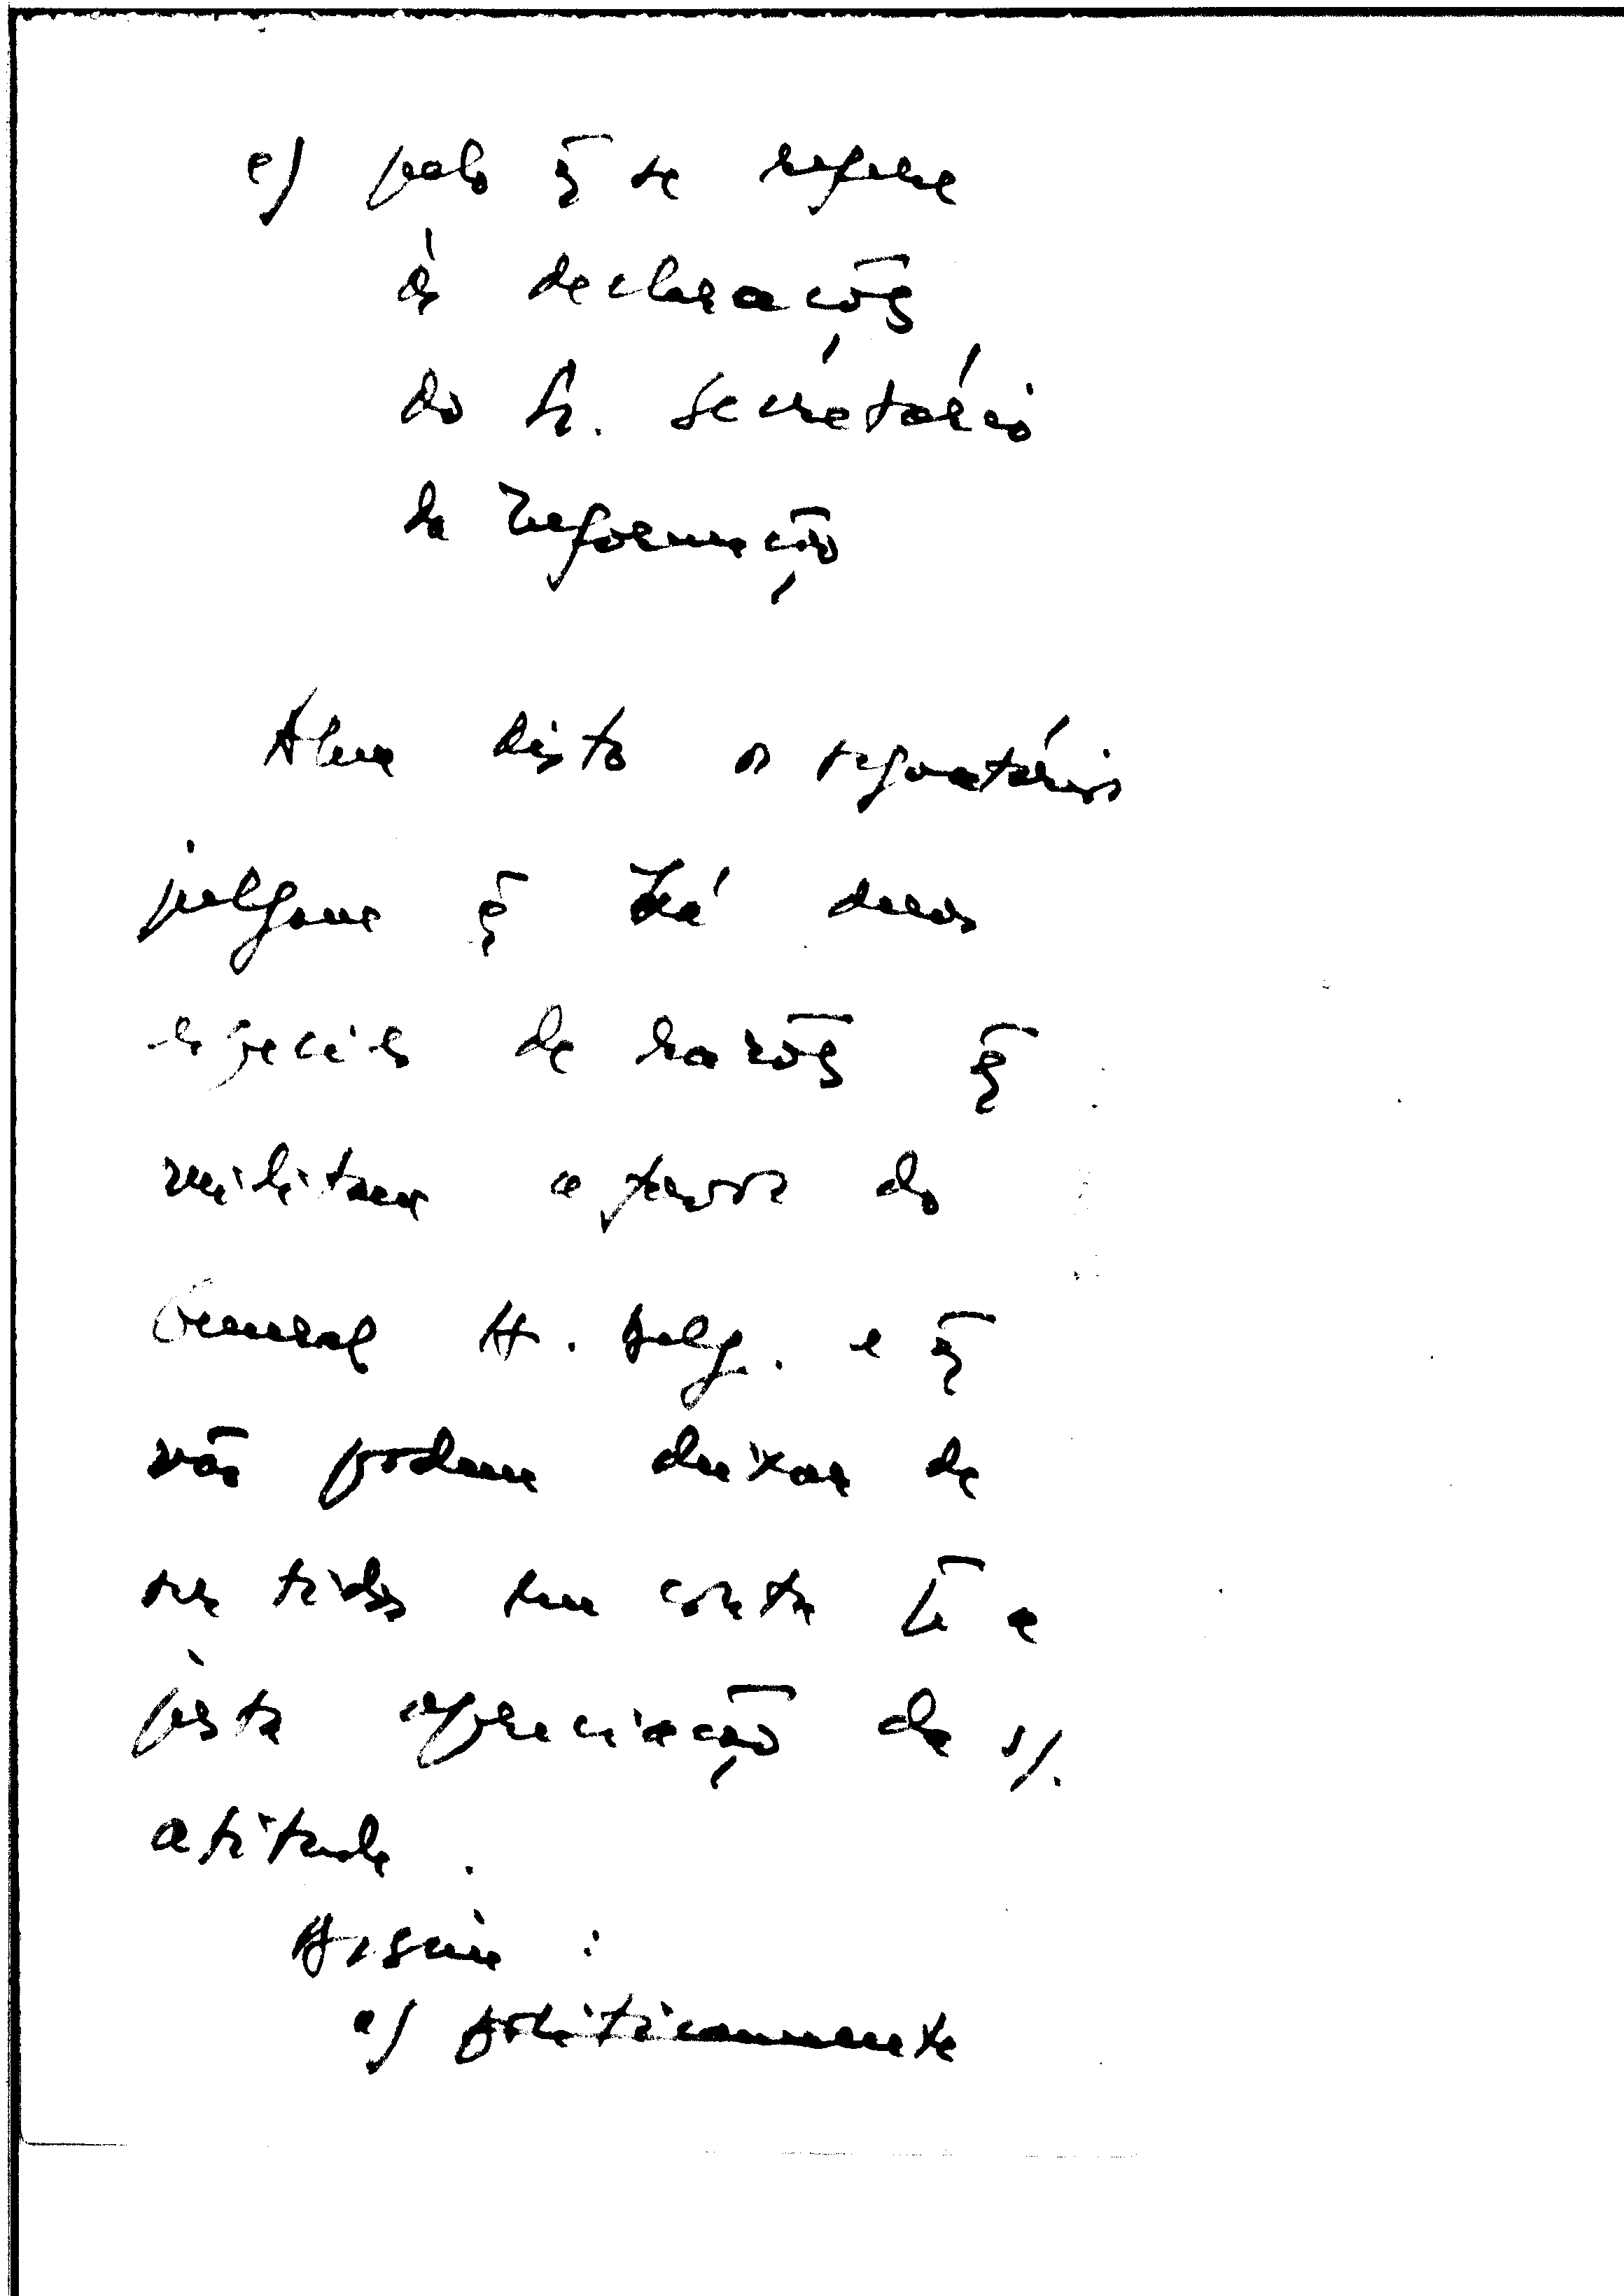 e) pelo q̃ se refere
às declarações
do Sr. Secretário
da Informação
Alem disto os signatários
julgam q̃ há duas
especies de razões q̃
militam a favor do
General H. Delg. e q̃
não podem deixar de
ser tidas em conta p̃ a
justa apreciação da s/.
atitude.
Assim:
a) politicamente